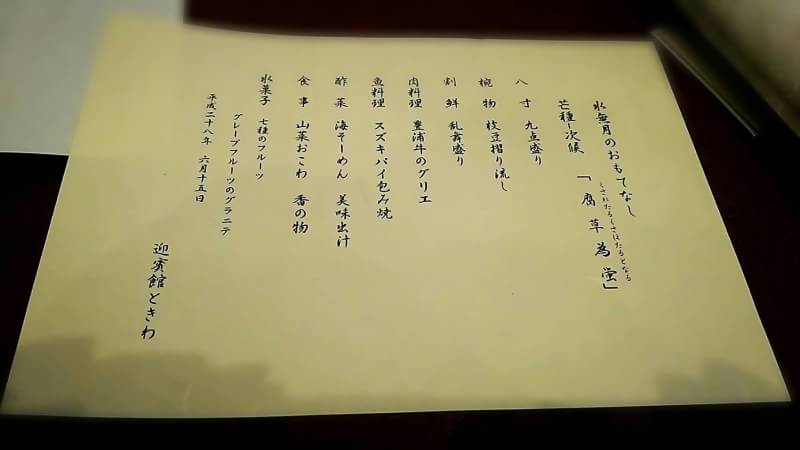 水無月のおもてなし
芒種-次候 「腐草為蛍」
くされたるくさほたるとなる
八寸 九点盛り
椀物 枝豆摺り流し
割鮮 乱舞盛り
肉料理 豊浦牛のグリエ
魚料理 スズキパイ包み焼
酢菜 海そーめん 美味出汁
食事 山菜おこわ 香の物
水菓子 七種のフルーツ
グレープフルーツのグラニテ
平成二十八年 六月十五日
迎賓館ときわ